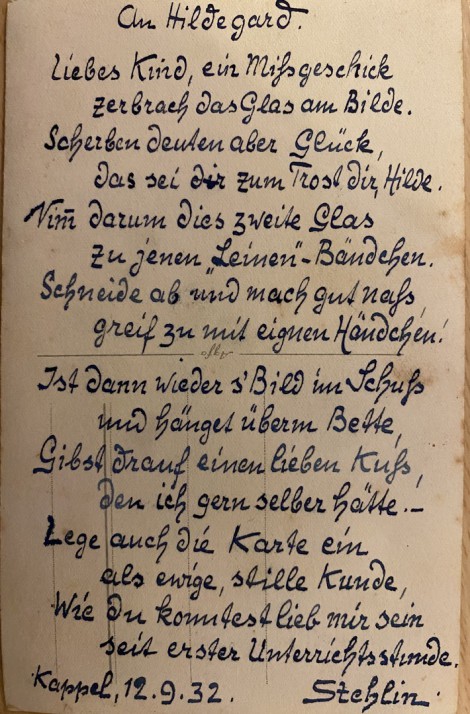 An Hildegard.
Liebes Kind, ein Mißgeschick
zerbrach das Glas am Bilde.
Scherben deuten aber Glück,
das sei dir zum Trost dir, Hilde.
Nim̅ darum dies zweite Glas
zu jenen „Leinen"-Bändchen.
Schneide ab und mach gut naß
greif zu mit eignen Händchen!
Ist dann wieder s'Bild im Schuß
und hänget überm Bette,
Gibst drauf einen lieben Kuß,
den ich gern selber hätte.–
Lege auch die Karte ein
als ewige, stille Kunde,
Wie du konntest lieb mir sein
seit erster Unterrichtsstunde.
Kappel, 12.9.32. Stehlin.